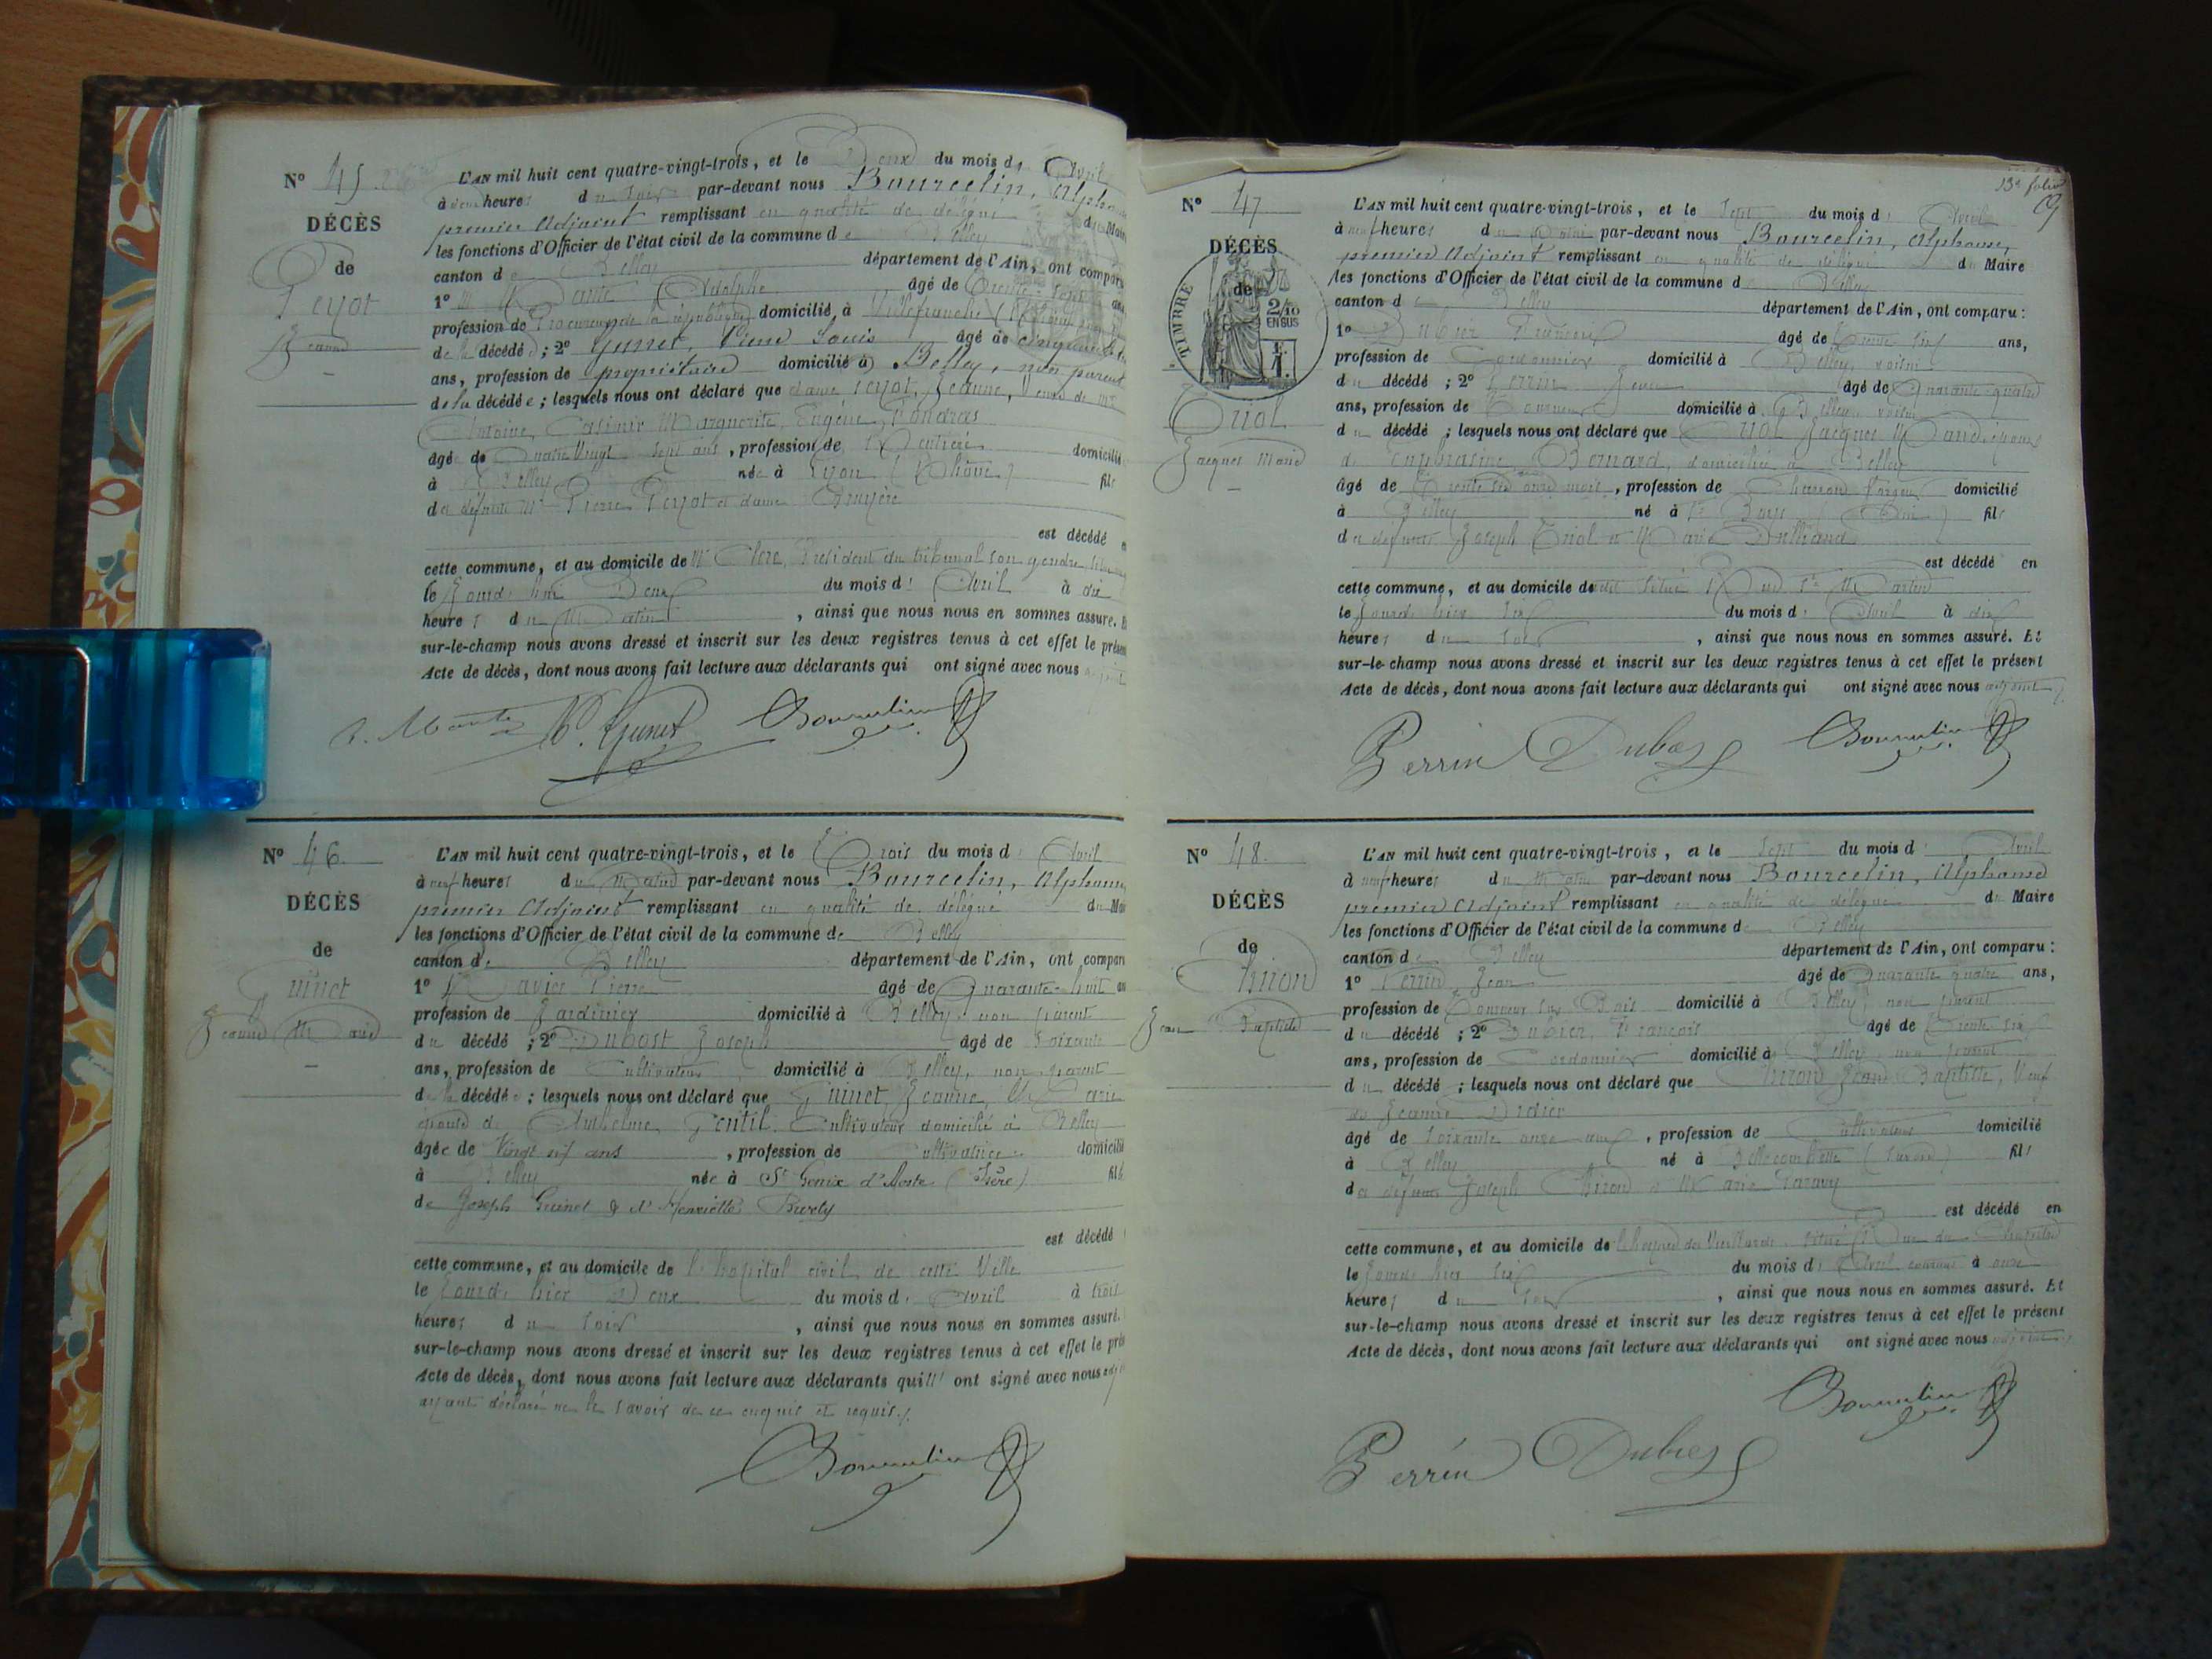 N° 45
DÉCÈS
de
Peyot
Jeanne
L'AN mil huit cent quatre-vingt-trois, et le Deux du mois d' Avril
à heures du soir par-devant nous Bourcelin, Alphonse
premier Adjoint remplissant en qualité de délégué du Maire
les fonctions d'Officier de l'état civil de la commune de Belley
canton de Belley département de l'Ain, ont comparu
1° Adolphe âgé de Trente sept ans
profession de Procureur de la république domicilié à Villefranche
de la décédée ; 2° Gunet, Pierre Louis âgé de cinquante
ans, profession de propriétaire domicilié à Belley, non parent
de la décédée ; lesquels nous ont déclaré que dame Peyot, Jeanne, Veuve de Mr
Antoine, Casimir Marguerite, Eugène, Fondras
âgée de Quatre Vingt sept ans, profession de Rentière domicilié
à Belley née à Lyon (Rhône) fille
de défunts Mr Pierre Peyot et dame Bruyère
est décédée en
cette commune, et au domicile de Mr Clerc, Président du tribunal son gendre
le Jourd'hui Deux du mois d' Avril à dix
heures du Matin, ainsi que nous nous en sommes assuré. Et
sur-le-champ nous avons dressé et inscrit sur les deux registres tenus à cet effet le présent
Acte de décès, dont nous avons fait lecture aux déclarants qui ont signé avec nous
P. Gunet Bourcelin
N° 46
DÉCÈS
de
Guinet
Jeanne Marie
L'AN mil huit cent quatre-vingt-trois, et le Trois du mois d' Avril
à neuf heures du Matin par-devant nous Bourcelin, Alphonse
premier Adjoint remplissant en qualité de délégué du Maire
les fonctions d'Officier de l'état civil de la commune de Belley
canton de Belley département de l'Ain, ont comparu
1° Pierre âgé de Quarante-huit ans
profession de Jardinier domicilié à Belley non parent
du décédé ; 2° Dubost Joseph âgé de soixante
ans, profession de Cultivateur domicilié à Belley, non parent
de la décédée ; lesquels nous ont déclaré que Guinet, Jeanne, Marie
épouse de Anthelme Gentil Cultivateur domicilié à Belley
âgée de Vingt six ans, profession de Cultivatrice domicilié
à Belley née à St Genix d'Aoste (Isère) fille
de Joseph Guinet & d' Henriette
est décédé
cette commune, et au domicile de l'hopital civil de cette Ville
le Jourd'hier Deux du mois d' Avril à trois
heures du soir, ainsi que nous nous en sommes assuré.
sur-le-champ nous avons dressé et inscrit sur les deux registres tenus à cet effet le pré
Acte de décès, dont nous avons fait lecture aux déclarants qui n' ont signé avec nous
ayant déclaré ne le savoir de ce enquis et requis.
Bourcelin
13e folio
N° 47
DÉCÈS
de
TIMBRE
2/10
EN SUS
Triol
Jacques Marie
L'AN mil huit cent quatre-vingt-trois, et le Sept du mois d' Avril
à neuf heures du Matin par-devant nous Bourcelin, Alphonse,
premier Adjoint remplissant en qualité de délégué du Maire
les fonctions d'Officier de l'état civil de la commune de Belley
canton de Belley département de l'Ain, ont comparu :
1° Dubier François âgé de Trente six ans,
profession de Cordonnier domicilié à Belley, voisin
du décédé ; 2° Perrin Jean âgé de Quarante quatre
ans, profession de Tourneur domicilié à Belley voisin
du décédé ; lesquels nous ont déclaré que Triol Jacques Marie, époux
de Euphrasine Bernard, domiciliée à Belley
âgé de Trente six ans onze mois, profession de Charron forgeur domicilié
à Belley né à (Ain) fils
de défunts Joseph Triol et Marie
est décédé en
cette commune, et au domicile de situé Rue St Martin
le Jourd'hier six du mois d' Avril à dix
heures du soir, ainsi que nous nous en sommes assuré. Et
sur-le-champ nous avons dressé et inscrit sur les deux registres tenus à cet effet le présent
Acte de décès, dont nous avons fait lecture aux déclarants qui ont signé avec nous adjoint
Perrin Bourcelin
N° 48
DÉCÈS
de
Jean Baptiste
L'AN mil huit cent quatre-vingt-trois, et le Sept du mois d' Avril
à neuf heures du Matin par-devant nous Bourcelin, Alphonse
premier Adjoint remplissant en qualité de délégué du Maire
les fonctions d'Officier de l'état civil de la commune de Belley
canton de Belley département de l'Ain, ont comparu :
1° Perrin Jean âgé de Quarante quatre ans,
profession de Tourneur sur Bois domicilié à Belley non parent
du décédé ; 2° Dubier, François âgé de Trente six
ans, profession de Cordonnier domicilié à Belley non parent
du décédé ; lesquels nous ont déclaré que Jean Baptiste, Veuf
de Jeanne Didier
âgé de soixante onze ans, profession de Cultivateur domicilié
à Belley né à (Savoie) fils
de défunts Joseph et Marie
est décédé en
cette commune, et au domicile de l'hospice des Vieillards situé Rue du
le Jourd'hier six du mois d' Avril courant à onze
heures du soir, ainsi que nous nous en sommes assuré. Et
sur-le-champ nous avons dressé et inscrit sur les deux registres tenus à cet effet le présent
Acte de décès, dont nous avons fait lecture aux déclarants qui ont signé avec nous adjoint
Bourcelin
Perrin